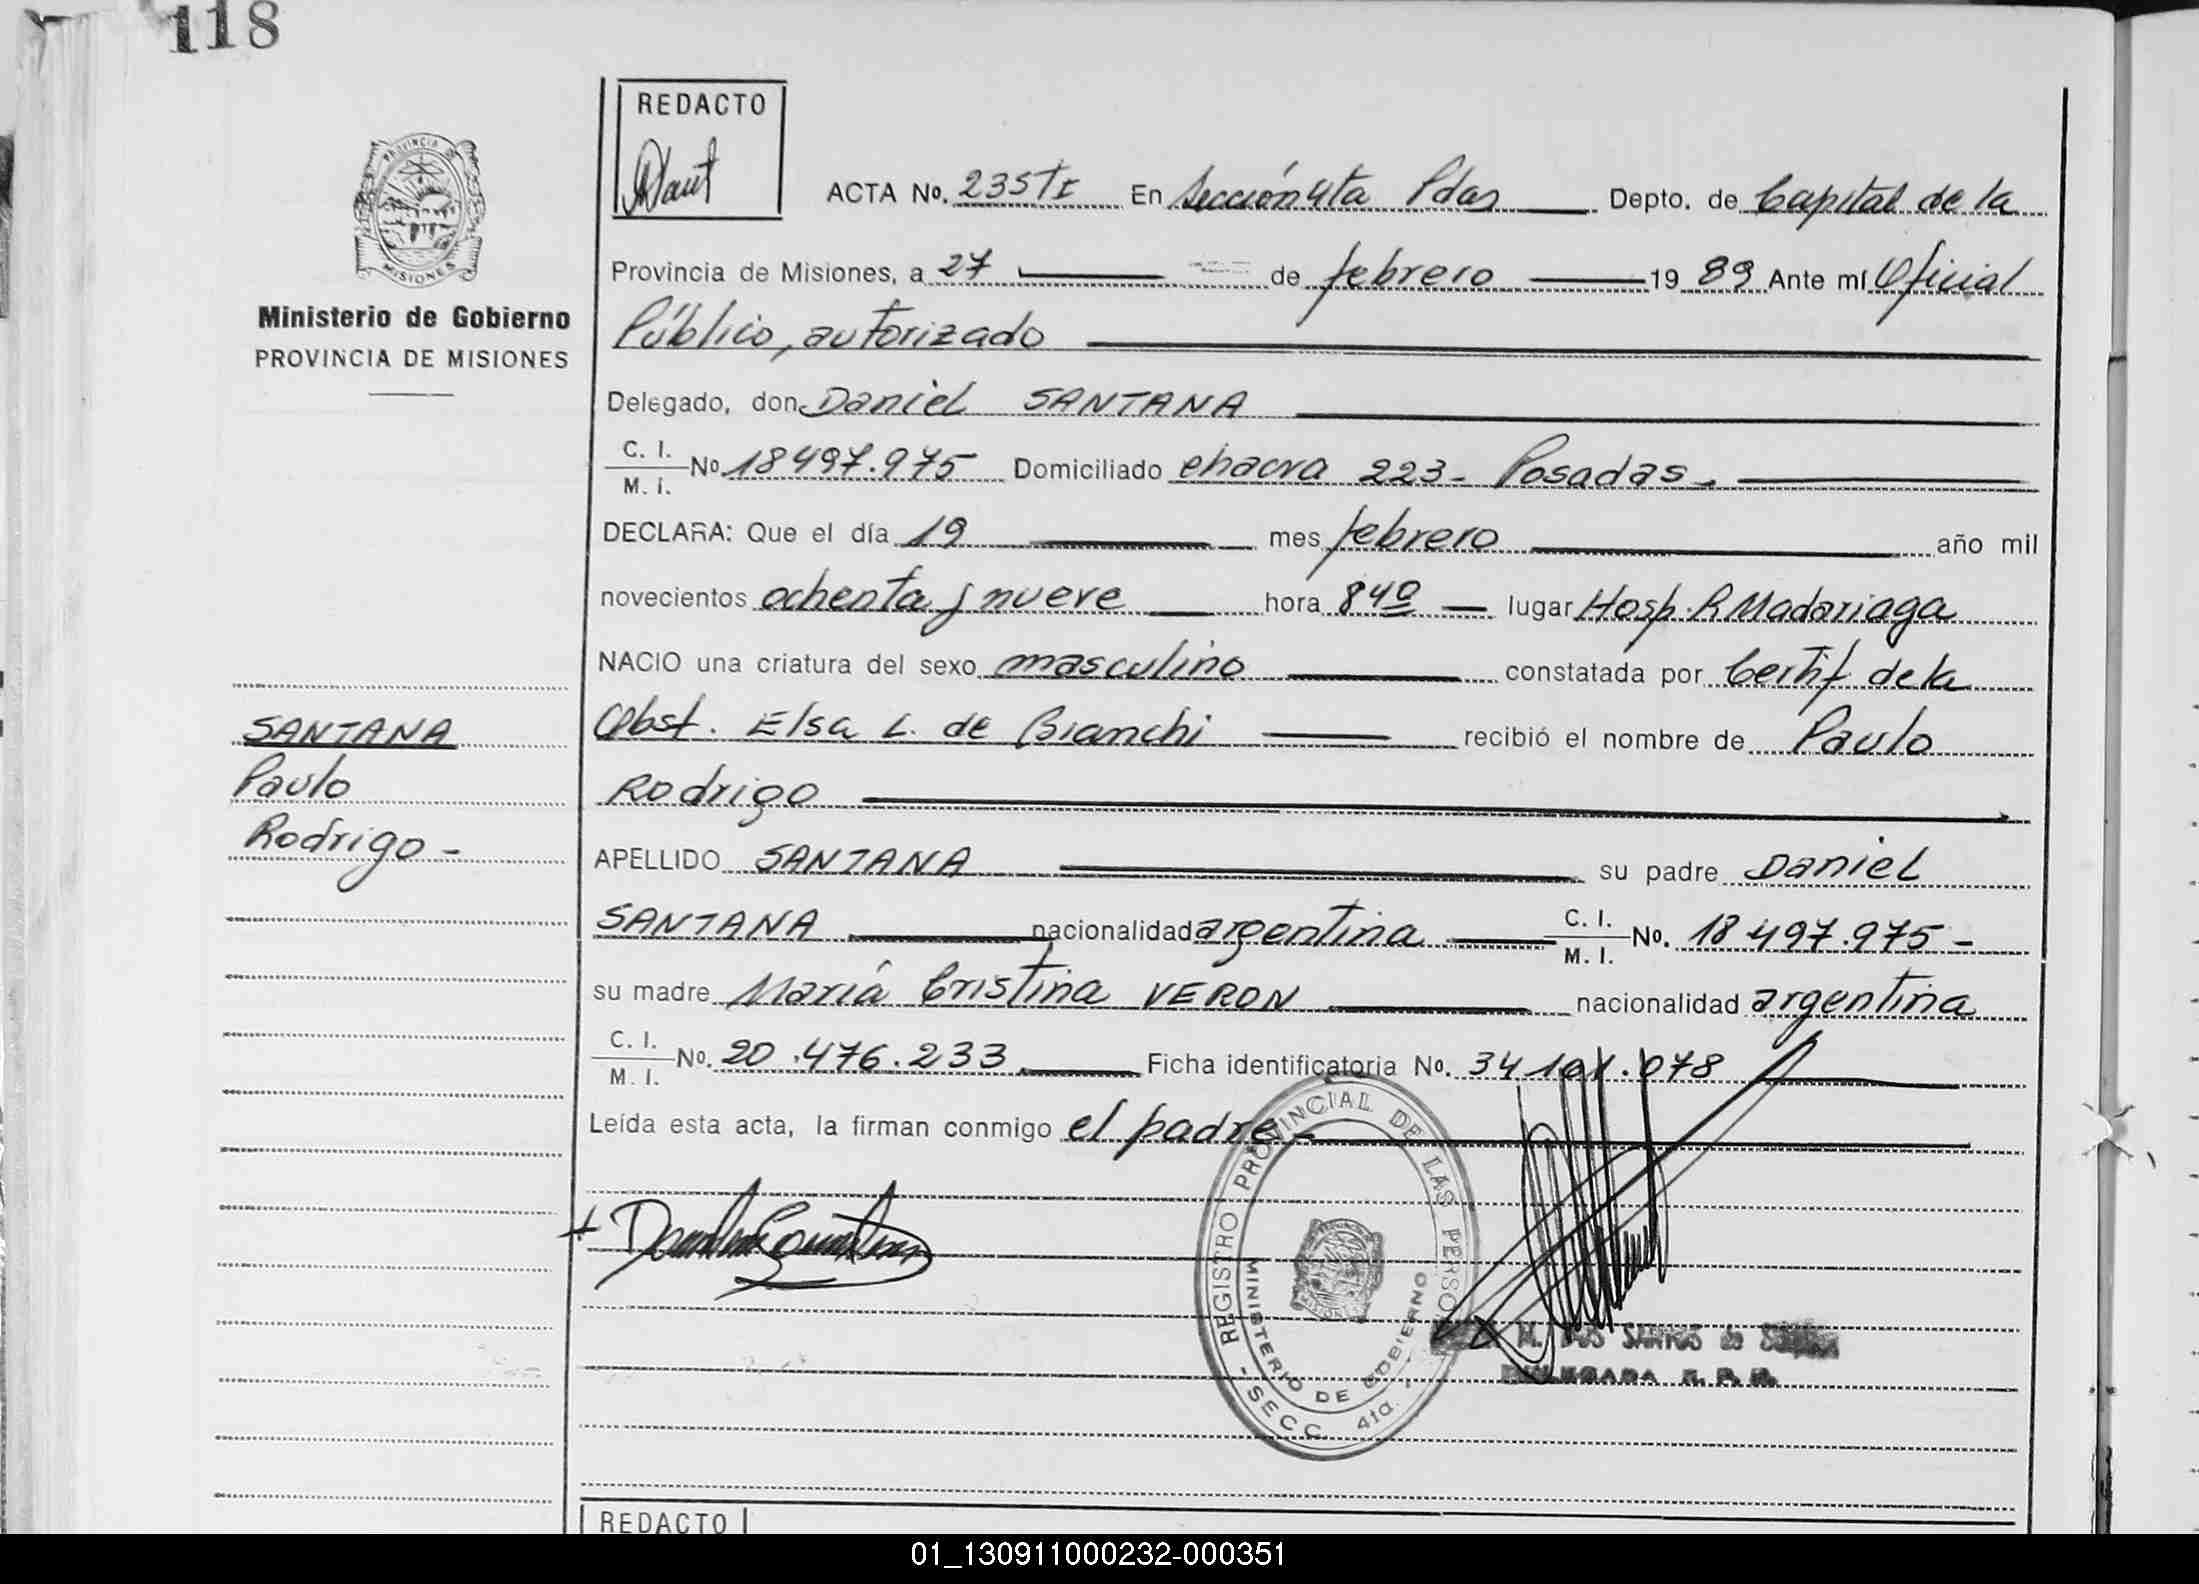 118
REDACTO
PROVINCIA DE
MISIONES
ACTA No. 235 TI En Sección 4ta Pdas Depto. de Capital de la
Provincia de Misiones, a 27 de febrero 1989 Ante mí Oficial
Ministerio de Gobierno
Público, autorizado
PROVINCIA DE MISIONES
Delegado, don Daniel SANTANA
C. I.
M. I. No 18497.975 Domiciliado chacra 223 - Posadas.
DECLARA: Que el día 19 mes febrero año mil
novecientos ochenta y nueve hora 840 lugar Hosp. R Madariaga
NACIO una criatura del sexo masculino constatada por Certif de la
SANTANA
Obst. Elsa L. de Bianchi recibió el nombre de Paulo
Paulo
Rodrigo
Rodrigo -
APELLIDO SANTANA su padre Daniel
SANTANA nacionalidad argentina C. I.
M. I. No. 18497.975 -
su madre María Cristina VERON nacionalidad argentina
C. I.
M. I. No. 20.476.233 Ficha identificatoria No. 34 .078
Leída esta acta, la firman conmigo el padre -
REGISTRO PROVINCIAL DE LAS PERSO
MINISTERIO DE GOBIERNO
- SECC. 4ta. -
M. DOS SANTOS de
DELEGADA
REDACTO
01_130911000232-000351